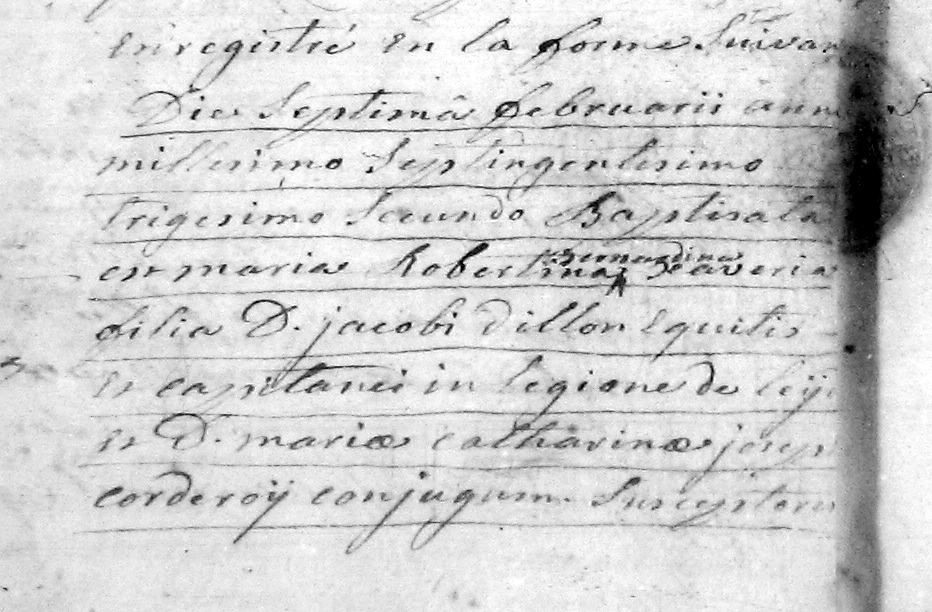 enregistré en la forme Suivan
Die Septimâ februarii ann
millesimo Septingentesimo
trigesimo Secundo Baptisata
est maria Robertina Bernardina Xaveria
filia D. jacobi Dillon Equitis
et capitanei in Legione de leÿ
et D. mariæ catharinæ josep
corderoÿ conjugum. Susceptoru